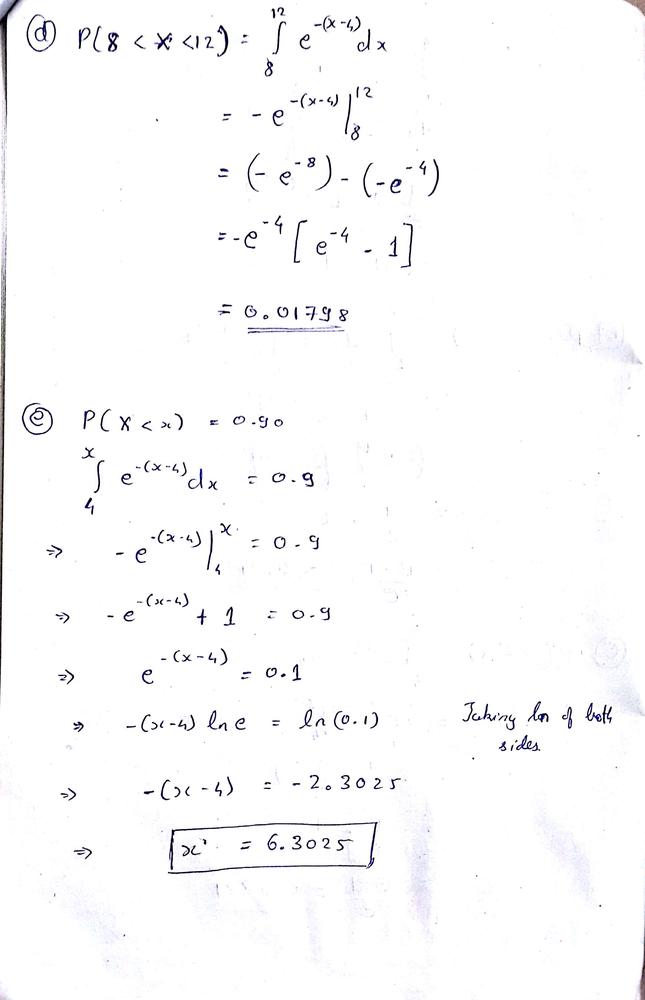 (d) P(8 < X < 12) = ∫₈¹² e^-(x-4) dx
= - e^-(x-4) |₈¹²
= (- e^-8) - (-e^-4)
= -e^-4 [ e^-4 - 1 ]
= 0.01798
(e) P(X < x) = 0.90
∫₄ˣ e^-(x-4) dx = 0.9
⇒ - e^-(x-4) |₄ˣ = 0.9
⇒ - e^-(x-4) + 1 = 0.9
⇒ e^-(x-4) = 0.1
⇒ -(x-4) ln e = ln (0.1) Taking ln of both
sides.
⇒ -(x-4) = -2.3025
⇒ x = 6.3025